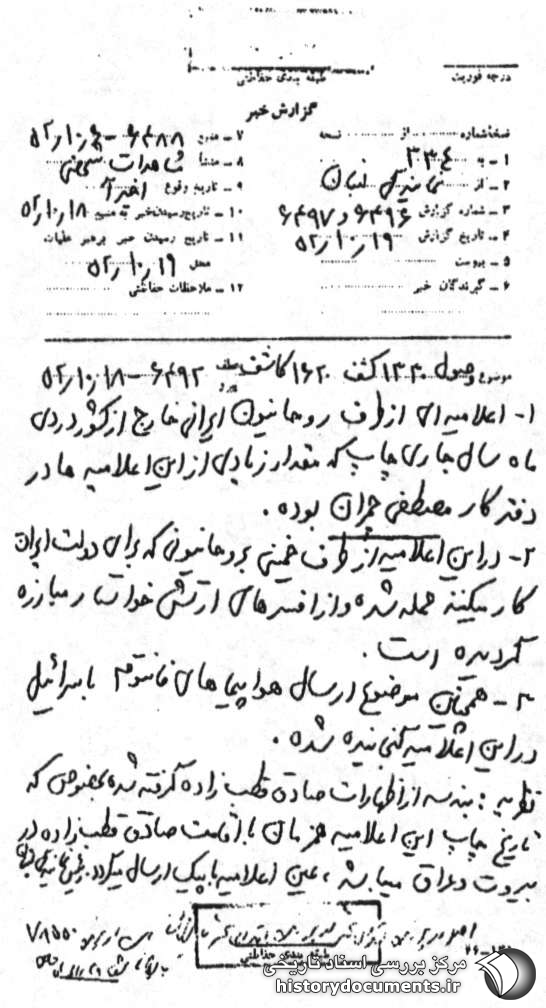 درجه فوریت
طبقه بندی حفاظتی
گزارش خبر
نسخه شماره ........ از ........ نسخه
۱ ـ به ۳۳۴
۲ ـ از نمایندگی لبنان
۳ ـ شماره گزارش ۶۴۹۶ و ۶۴۹۷
۴ ـ تاریخ گزارش ۵۲/۱۰/۱۹
۵ ـ پیوست
۶ ـ گیرندگان خبر
۷ ـ ۶۴۸۸ - ۵۲/۱۰/۶
۸ ـ منشأ مشاهدات شخصی
۹ ـ تاریخ وقوع اخیراً
۱۰ ـ تاریخ رسیدن خبر به منبع ۵۲/۱۰/۱۸
۱۱ ـ تاریخ رسیدن خبر به رهبر عملیات
محل ۵۲/۱۰/۱۹
۱۲ ـ ملاحظات حفاظتی
موضوع وصول ۱۳۳۰ کشف ۱۶۲۰ کاشف ۶۴۹۲ - ۵۲/۱۰/۱۸
۱- اعلامیه‌ای از طرف روحانیون ایرانی خارج از کشور در دی
ماه سال جاری چاپ که مقدار زیادی از این اعلامیه ها در
دفتر کار مصطفی چمران بوده.
۲- در این اعلامیه از طرف خمینی بروحانیونی که برای دولت ایران
کار میکنند حمله شده و از افسرهای ارتشی خواستار مبارزه
گردیده است.
۳- همچنین موضوع ارسال هواپیماهای فانتوم باسرائیل
در این اعلامیه گنجانیده شده.
نظریه: بند سه از اظهارات صادق قطب زاده گرفته شده بخصوص که
تاریخ چاپ این اعلامیه همزمان با اقامت صادق قطب زاده در
بیروت و عراق میباشد، عین اعلامیه با پیک ارسال میگردد.
طبقه بندی حفاظتی
۷۸۵۵۰
مرکز بررسی اسناد تاریخی
historydocuments.ir